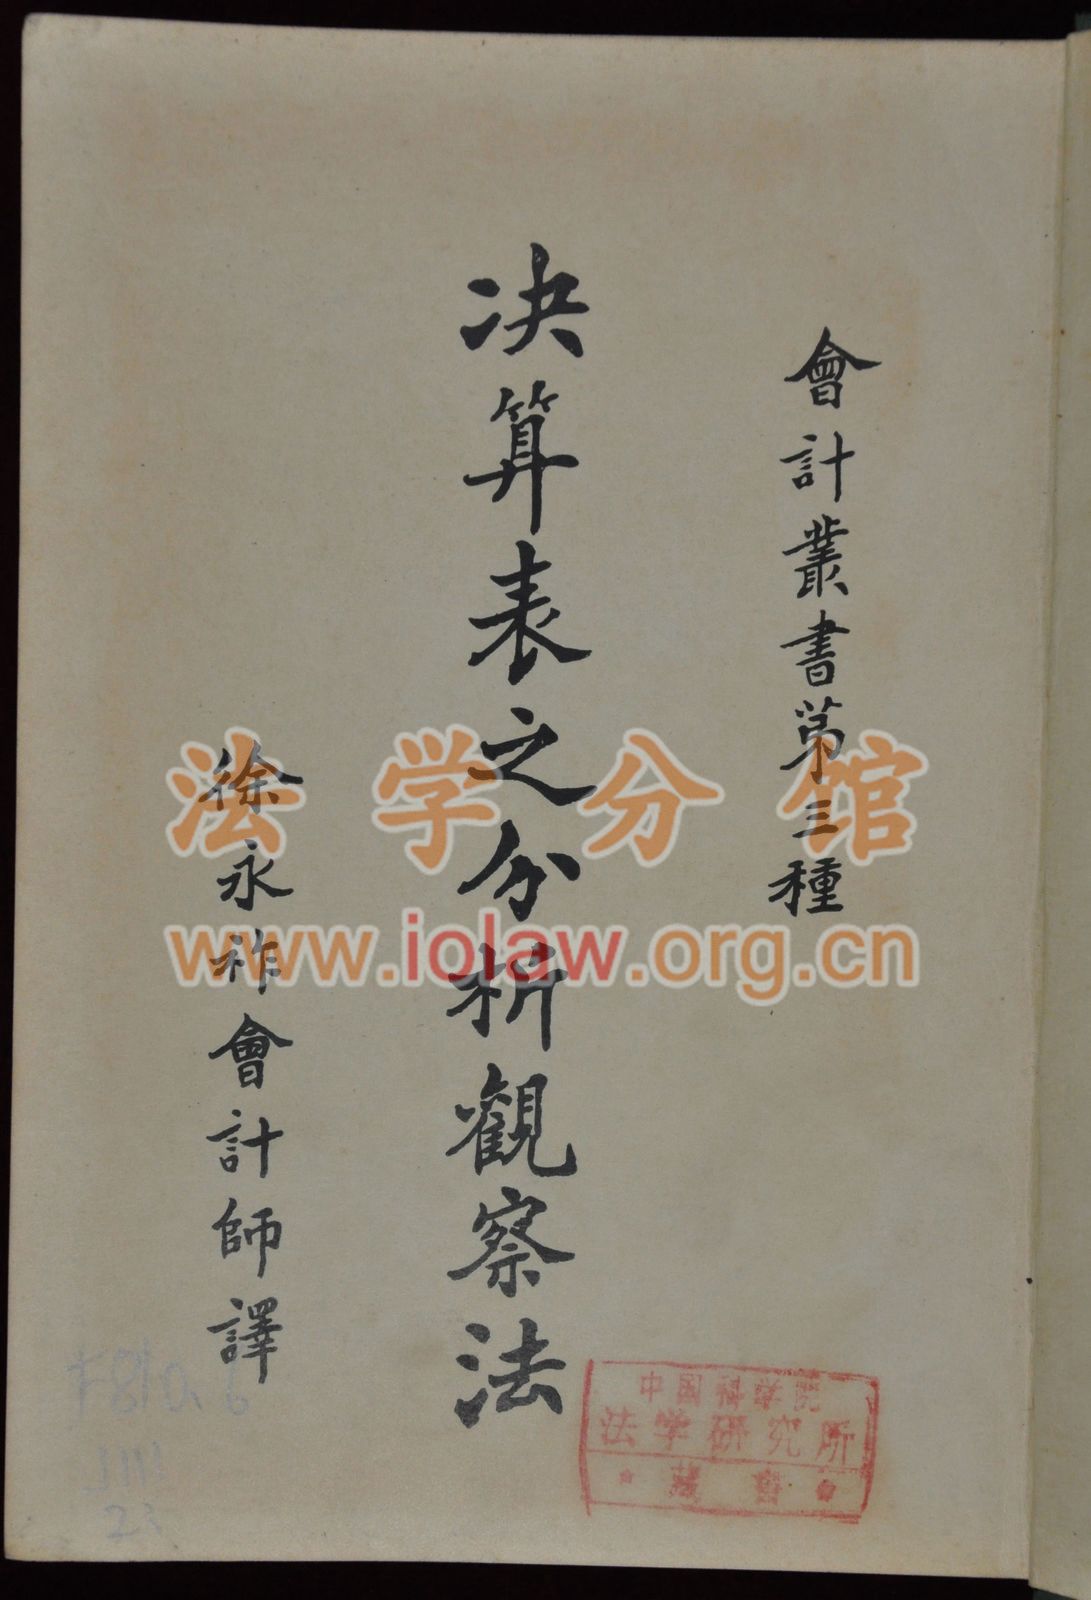 會計叢書第三種
决算表之分析觀察法
徐永祚會計師譯
法学分馆
www.iolaw.org.cn
中国科学院
法学研究所
藏書